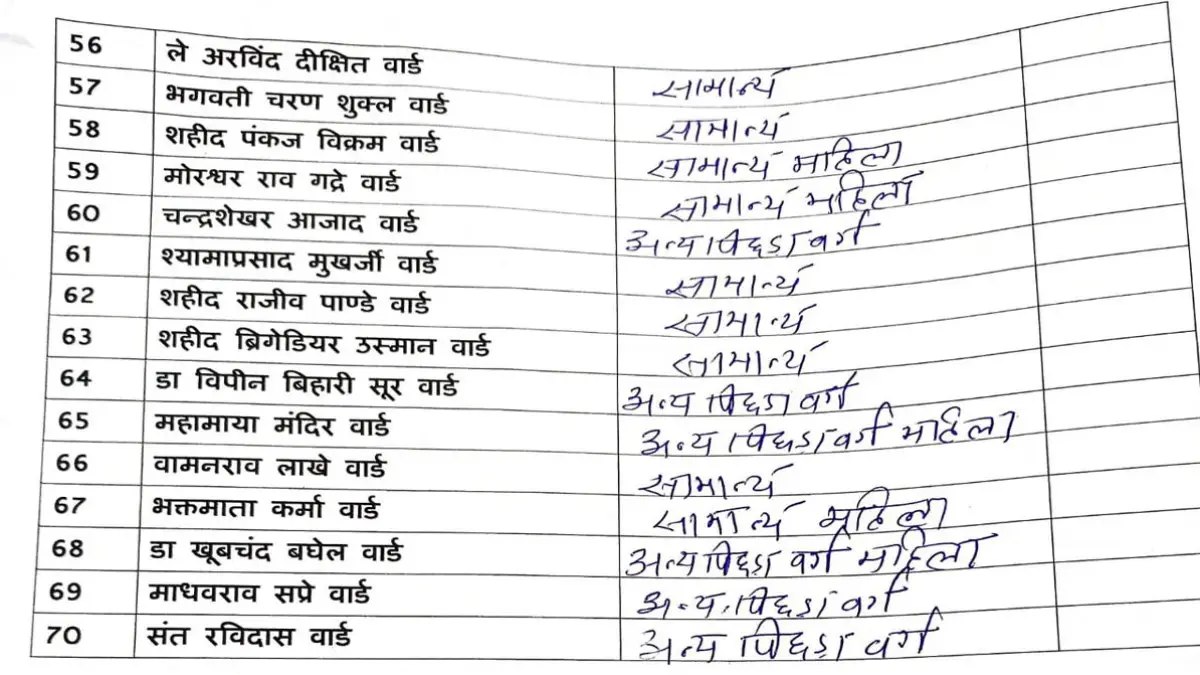 56 ले अरविंद दीक्षित वार्ड सामान्य
57 भगवती चरण शुक्ल वार्ड सामान्य
58 शहीद पंकज विक्रम वार्ड सामान्य महिला
59 मोरश्वर राव गद्रे वार्ड सामान्य महिला
60 चन्द्रशेखर आजाद वार्ड अन्य पिछड़ा वर्ग
61 श्यामाप्रसाद मुखर्जी वार्ड सामान्य
62 शहीद राजीव पाण्डे वार्ड सामान्य
63 शहीद ब्रिगेडियर उस्मान वार्ड सामान्य
64 डा विपीन बिहारी सूर वार्ड अन्य पिछडा वर्ग
65 महामाया मंदिर वार्ड अन्य पिछड़ा वर्ग महिला
66 वामनराव लाखे वार्ड सामान्य
67 भक्तमाता कर्मा वार्ड सामान्य महिला
68 डा खूबचंद बघेल वार्ड अन्य पिछड़ा वर्ग महिला
69 माधवराव सप्रे वार्ड अन्य पिछड़ा वर्ग
70 संत रविदास वार्ड अन्य पिछड़ा वर्ग